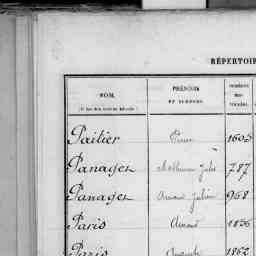 RÉPERTOIR
NOM.
PRÉNOMS
ET SURNOMS.
NUMÉROS
Paitier Pierre 1605
Panages Mathurin Jules 787
Panages Armand Julien 968
Paris Armand 1836
Paris Auguste 1862